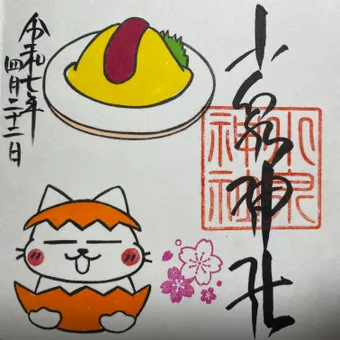 小泉神社
小泉
神社
令和七年
四月二十二日